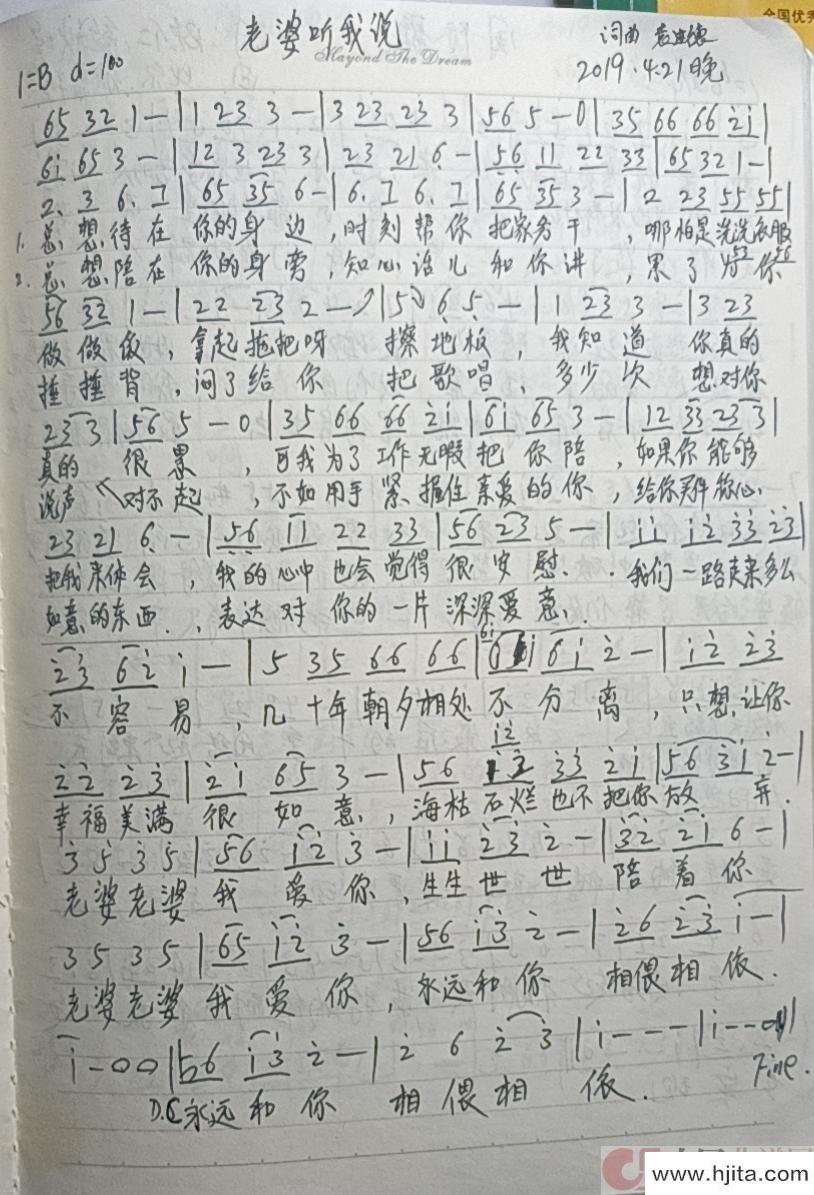 全国优秀
老婆听我说
Mayond The Dream
词曲
2019.4.21晚
1=B d=100
65 32 1 - | 1 23 3 - | 3 23 23 3 | 56 5 - 0 | 35 66 66 2̇1̇ |
61̇ 65 3 - | 12 3 23 3 | 23 21 6̣ - | 5̣6̣ 11 22 33 | 65 32 1 - |
2. 3 6. 1 | 65 35 6 - | 6. 1 6. 1 | 65 35 3 - | 2 23 55 55 |
1. 总想待在 你的身边,时刻帮你 把家务干,哪怕是洗洗衣服
2. 总想陪在 你的身旁,知心话儿 和你讲,累了为你
56 32 1 - | 22 23 2 - | 5 6 5 - | 1 23 3 - | 3 23
做做饭,拿起拖把呀 擦地板,我知道 你真的
捶捶背,闷了给你 把歌唱,多少次 想对你
23 3 | 56 5 - 0 | 35 66 66 2̇1̇ | 61̇ 65 3 - | 12 33 23 3 |
真的 很累,可我为了工作无暇把你陪,如果你能够
说声 对不起,不如用手紧握住亲爱的你,给你买件称心
23 21 6̣ - | 5̣6̣ 11 22 33 | 56 23 5 - | 1̇1̇ 1̇2̇ 3̇3̇ 2̇3̇ |
把我来体会,我的心中也会觉得很安慰..我们一路走来多么
如意的东西.,表达对你的一片深深爱意.
2̇3̇ 62̇ 1̇ - | 5 35 66 66 | 61̇ 61̇ 2̇ - | 1̇2̇ 2̇3̇
不容易 几十年朝夕相处不分离,只想让你
1̇2̇
2̇2̇ 2̇3̇ | 2̇1̇ 65 3 - | 56 3̇3̇ 2̇1̇ | 56 3̇1̇ 2̇ - |
幸福美满很如意,海枯石烂也不把你放弃.
3̇ 5̇ 3̇ 5̇ | 56 1̇2̇ 3̇ - | 1̇1̇ 2̇3̇ 2̇ - | 3̇2̇ 2̇1̇ 6 - |
老婆老婆我爱你,生生世世陪着你
3 5 3 5 | 65 1̇2̇ 3̇ - | 56 1̇3̇ 2̇ - | 2̇6 2̇3̇ 1̇ - |
老婆老婆我爱你,永远和你 相偎相依.
1̇ - 0 0 | 56 1̇3̇ 2̇ - | 2̇ 6 2̇ 3̇ | 1̇ - - - | 1̇ - - 0 |
D.C 永远和你 相偎相依. Fine.
www.hjita.com